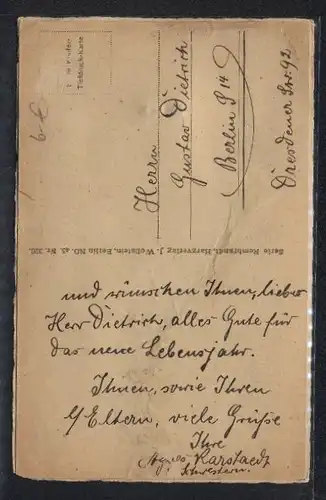 Herrn
Gustav Dietrich
Berlin S 14
Dresdener Str. 92
Serie Rembrandt, Harzverlag J. Wollstein, Berlin NO. 43. Nr. 332.
und wünschen Ihnen, lieber
Herr Dietrich, alles Gute für
das neue Lebensjahr.
Ihnen, sowie Ihren
Eltern, viele Grüße
Ihre
Agnes Karstaedt
Schwestern.